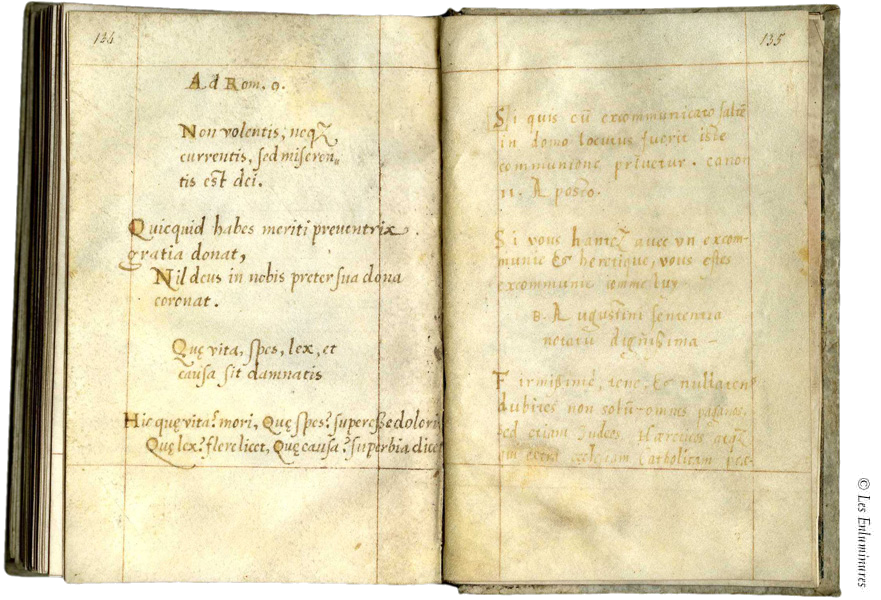 134
Ad Rom. 9.
Non volentis, neqꝫ
currentis, sed miseren„
tis est dei.
Quicquid habes meriti preventrix
gratia donat,
Nil deus in nobis preter sua dona
coronat.
Quę vita, spes, lex, et
causa sit damnatis
Hic quę vita? mori, Quę spes? superesse dolori
Quę lex? flere licet, Quę causa? superbia dicet
135
Si quis cū excommunicato saltē
in domo locutus fuerit iste
communione priuetur. canon
11. Aposto.
Si vous hantez avec un excom-
munie & heretique, vous estes
excommunie comme luy
B. Augustini sententia
notatu dignissima -
Firmissimè, tene, & nullaten9
dubites non solū omnes paganos,
sed etiam Judeos, Hæreticos atqꝫ
ecclesiam Catholicam
© Les Enluminures